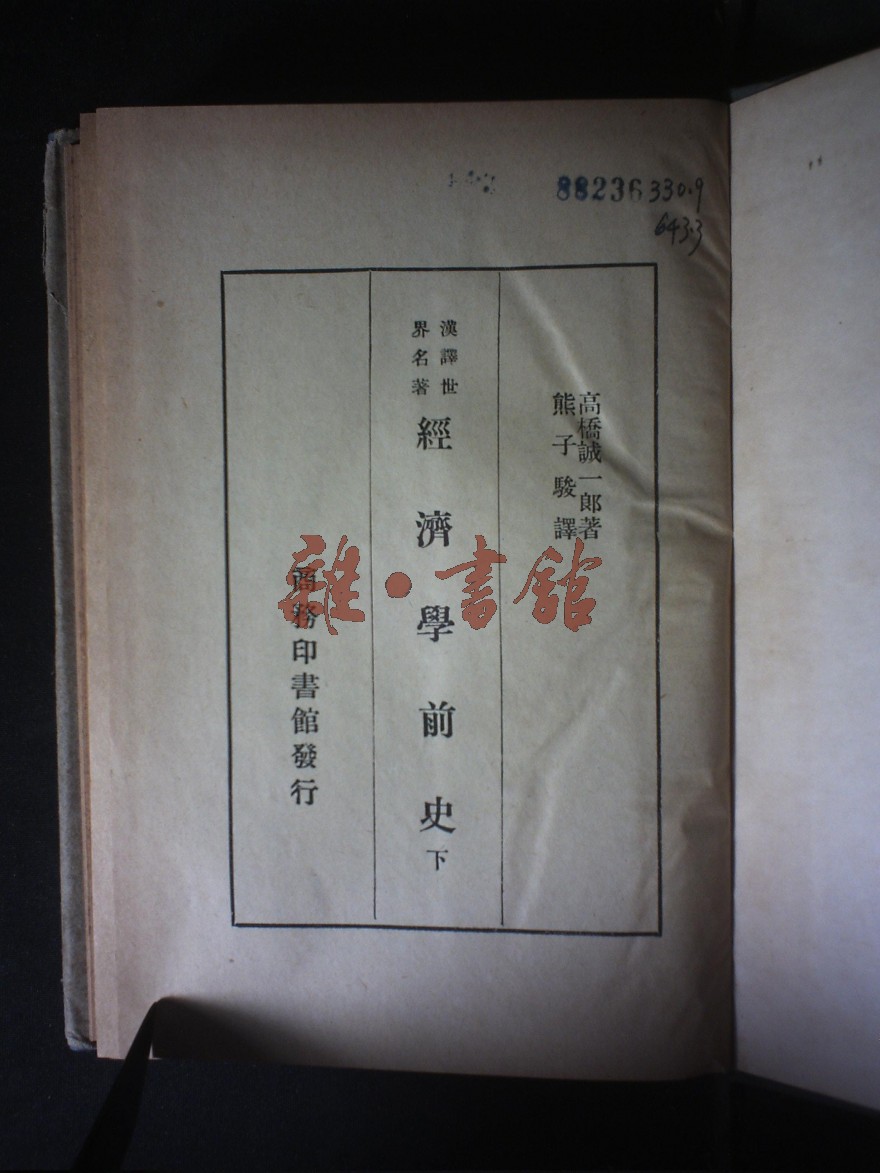 88236 330.9
643.3
高橋誠一郎著
熊子駿譯
漢譯世
界名著
經濟學前史下
商務印書館發行
雜·書館